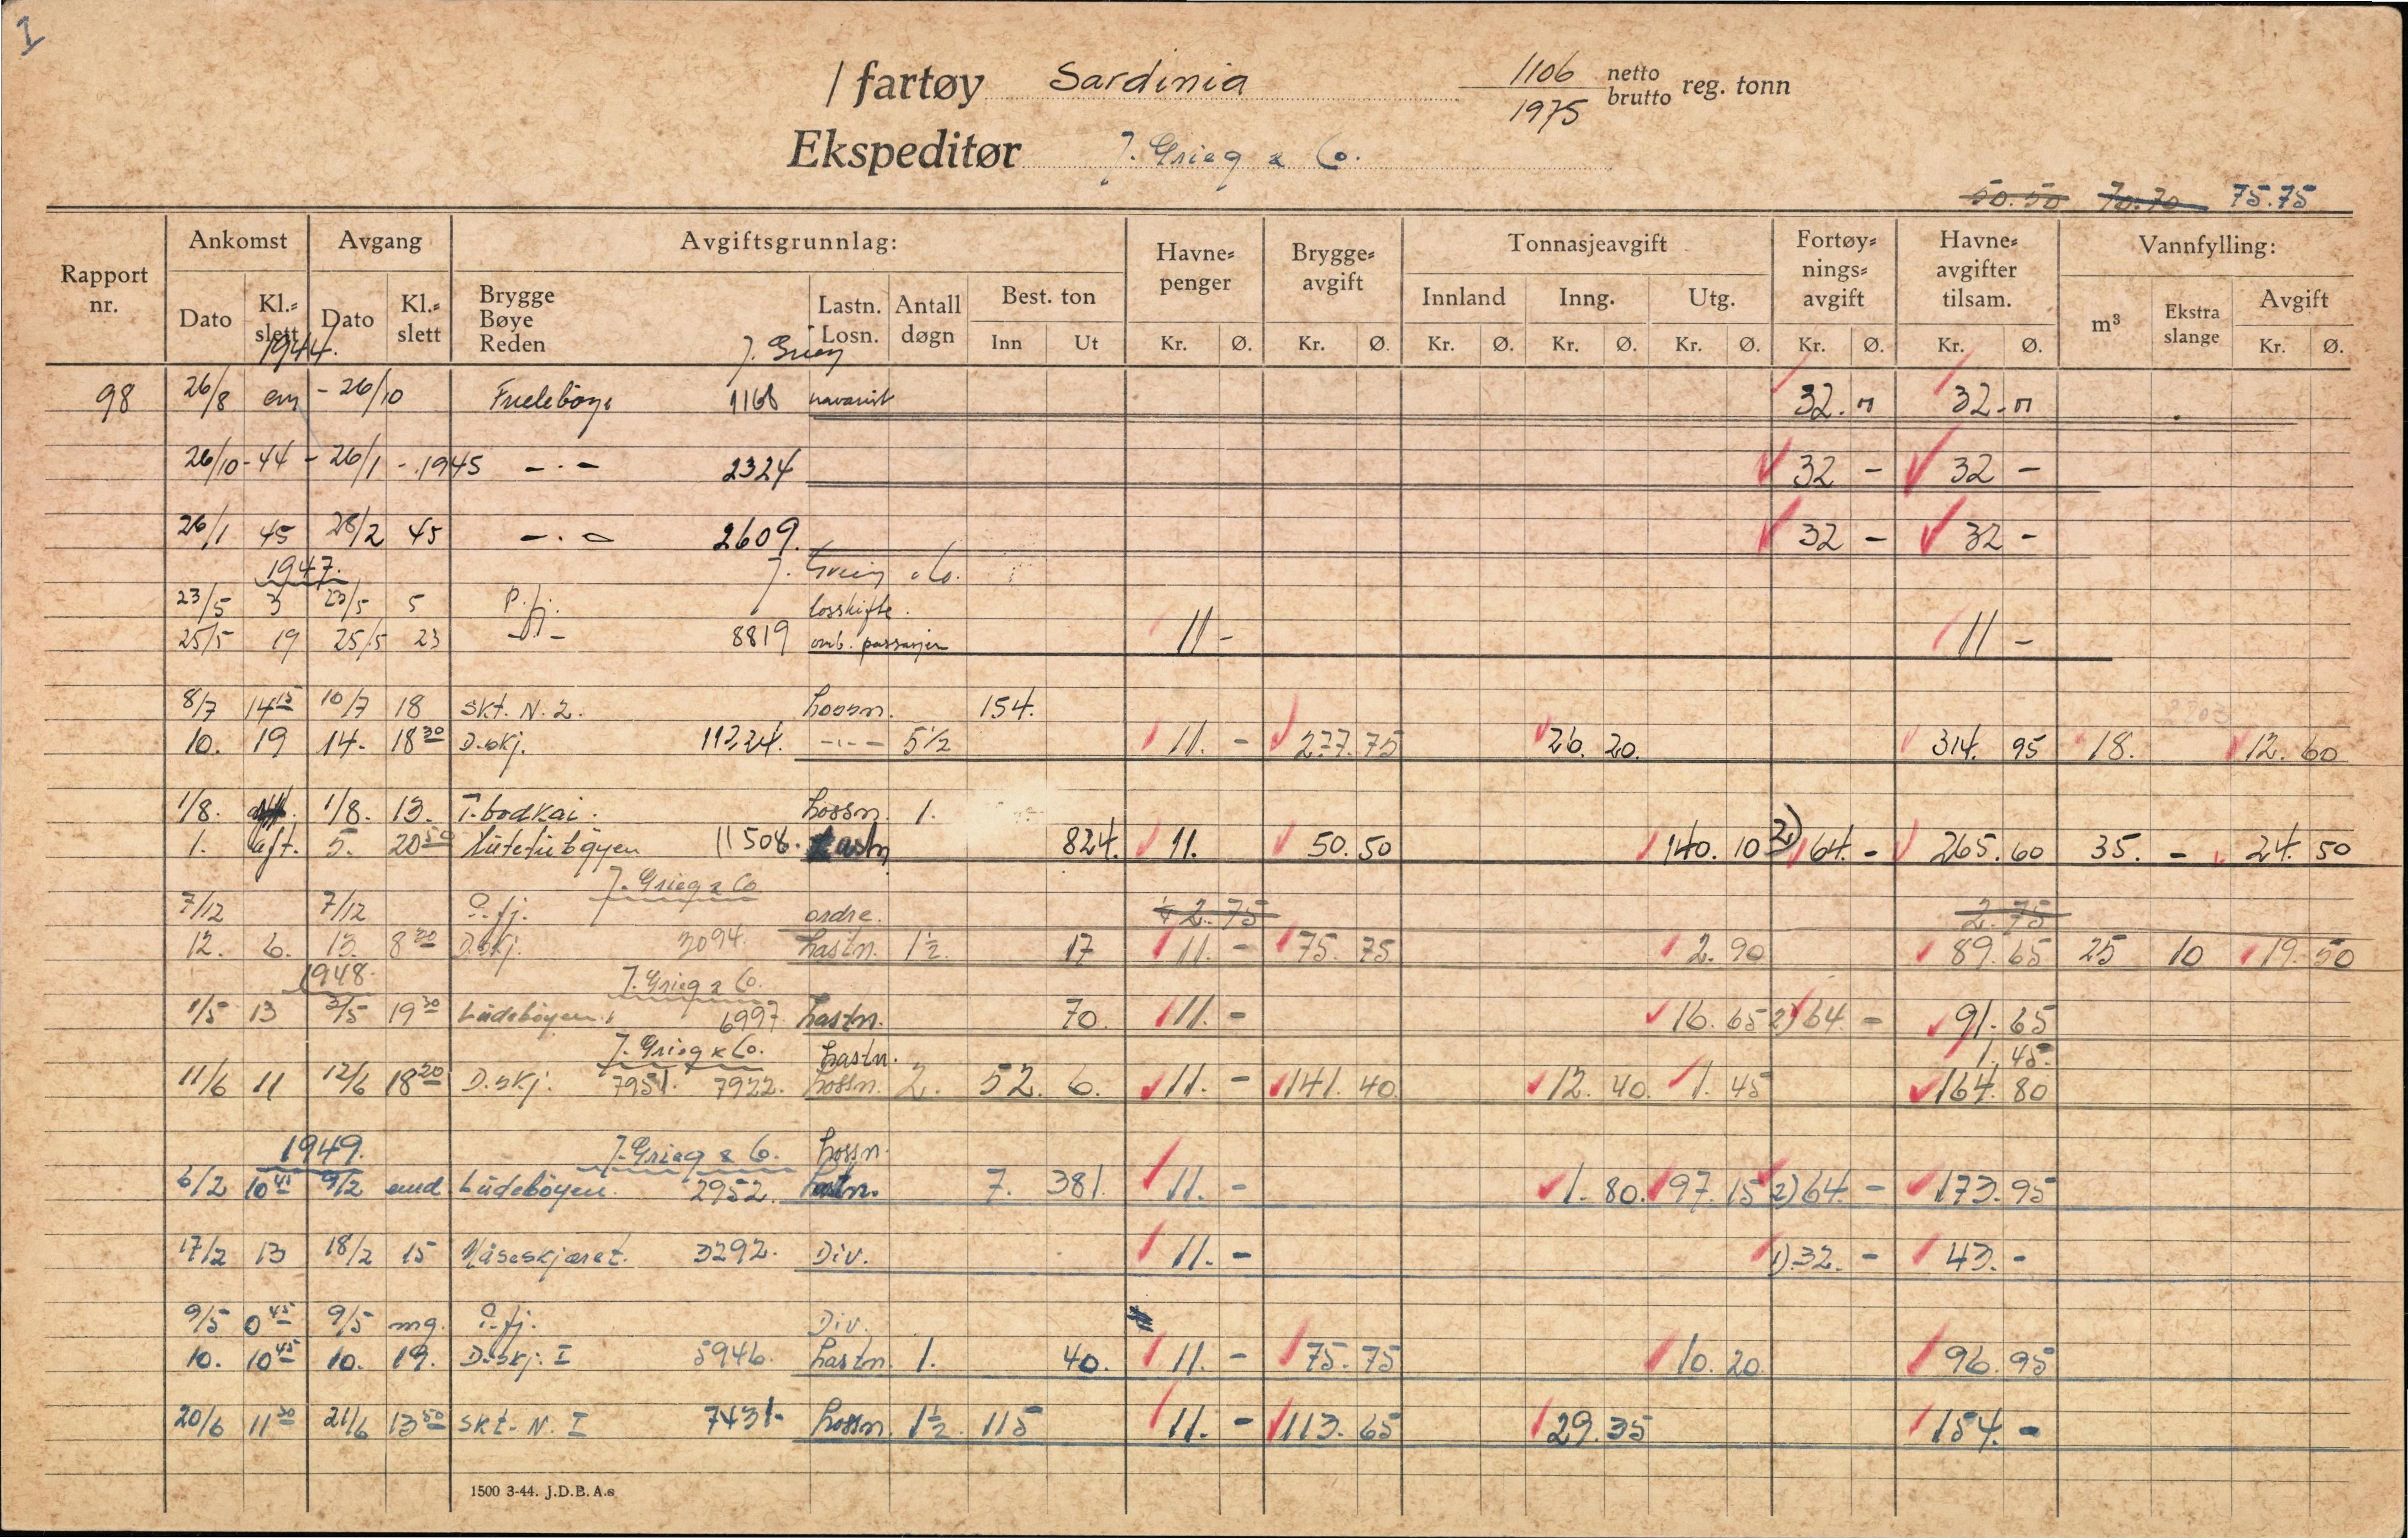 I
/ fartøy Sardinia 1106 netto
1975 brutto reg. tonn
Ekspeditør J. Grieg & Co.
50.50 70.70 75.75
Rapport nr. Ankomst Avgang Avgiftsgrunnlag: Havne-penger Brygge-avgift Tonnasjeavgift Fortøy-nings-avgift Havne-avgifter tilsam. Vannfylling:
Dato Kl.-slett Dato Kl.-slett Brygge Bøye Reden Lastn. Losn. Antall døgn Best. ton Innland Inng. Utg. m³ Ekstra slange Avgift
Inn Ut Kr. Ø. Kr. Ø. Kr. Ø. Kr. Ø. Kr. Ø. Kr. Ø. Kr. Ø. Kr. Ø.
1944. J. Grieg
98 26/8 em - 26/10 1168 32. 32.
26/10 - 44 - 26/1 - 1945 - . - 2324 32 - 32 -
26/1 45 28/2 45 - . - 2609. 32 - 32 -
1947. J. Grieg & Co.
23/5 3 23/5 5 P. fj. losskifte.
25/5 19 25/5 23 - " - 8819 omb. passasjer 11 - 11 -
8/7 14 15 10/7 18 Skt. N. 2. Lossn. 154.
10. 19 14. 18 30 D.skj. 11224. - . - 5 1/2 11. - 277.75 26.20. 314.95 18. 12.60
1/8. 1/8. 13. T.bodkai. Lossn. 1.
1. aft. 5. 20 50 11508. Lastn 824. 11. 50.50 140.10 2) 64. - 265.60 35. - 24.50
J. Grieg & Co
7/12 7/12 P. fj. ordre. 2.75 2.75
12. 6. 13. 8 30 D.skj. 3094. Lastn. 1 1/2. 17 11. - 75.75 2.90 89.65 25 10 19.50
1948. J. Grieg & Co.
1/5 13 3/5 19 30 Lüdebøyen. 6997 Lastn. 70. 11. - 16.65 2) 64 - 91.65
J. Grieg & Co. Lastn. 1.45.
11/6 11 12/6 18 20 D.skj. 7951. 7922. Lossn. 2. 52. 6. 11. - 141.40 12.40. 1.45 164.80
1949. J. Grieg & Co. Lossn.
6/2 10 45 9/2 emd Lüdebøyen. 2952. Lastn. 7. 381. 11. - 1.80. 97.15 2) 64. - 173.95
17/2 13 18/2 15 Måseskjæret. 3292. Div. 11. - 1) 32. - 43. -
9/5 0 45 9/5 mg. P. fj. Div.
10. 10 45 10. 19. D.skj. I 5946. Lastn. 1. 40. 11. - 75.75 10.20 96.95
20/6 11 30 21/6 13 50 Skt. N. I 7431. Lossn. 1 1/2. 115 11. - 113.65 29.35 154. -
1500 3-44. J.D.B.A.s